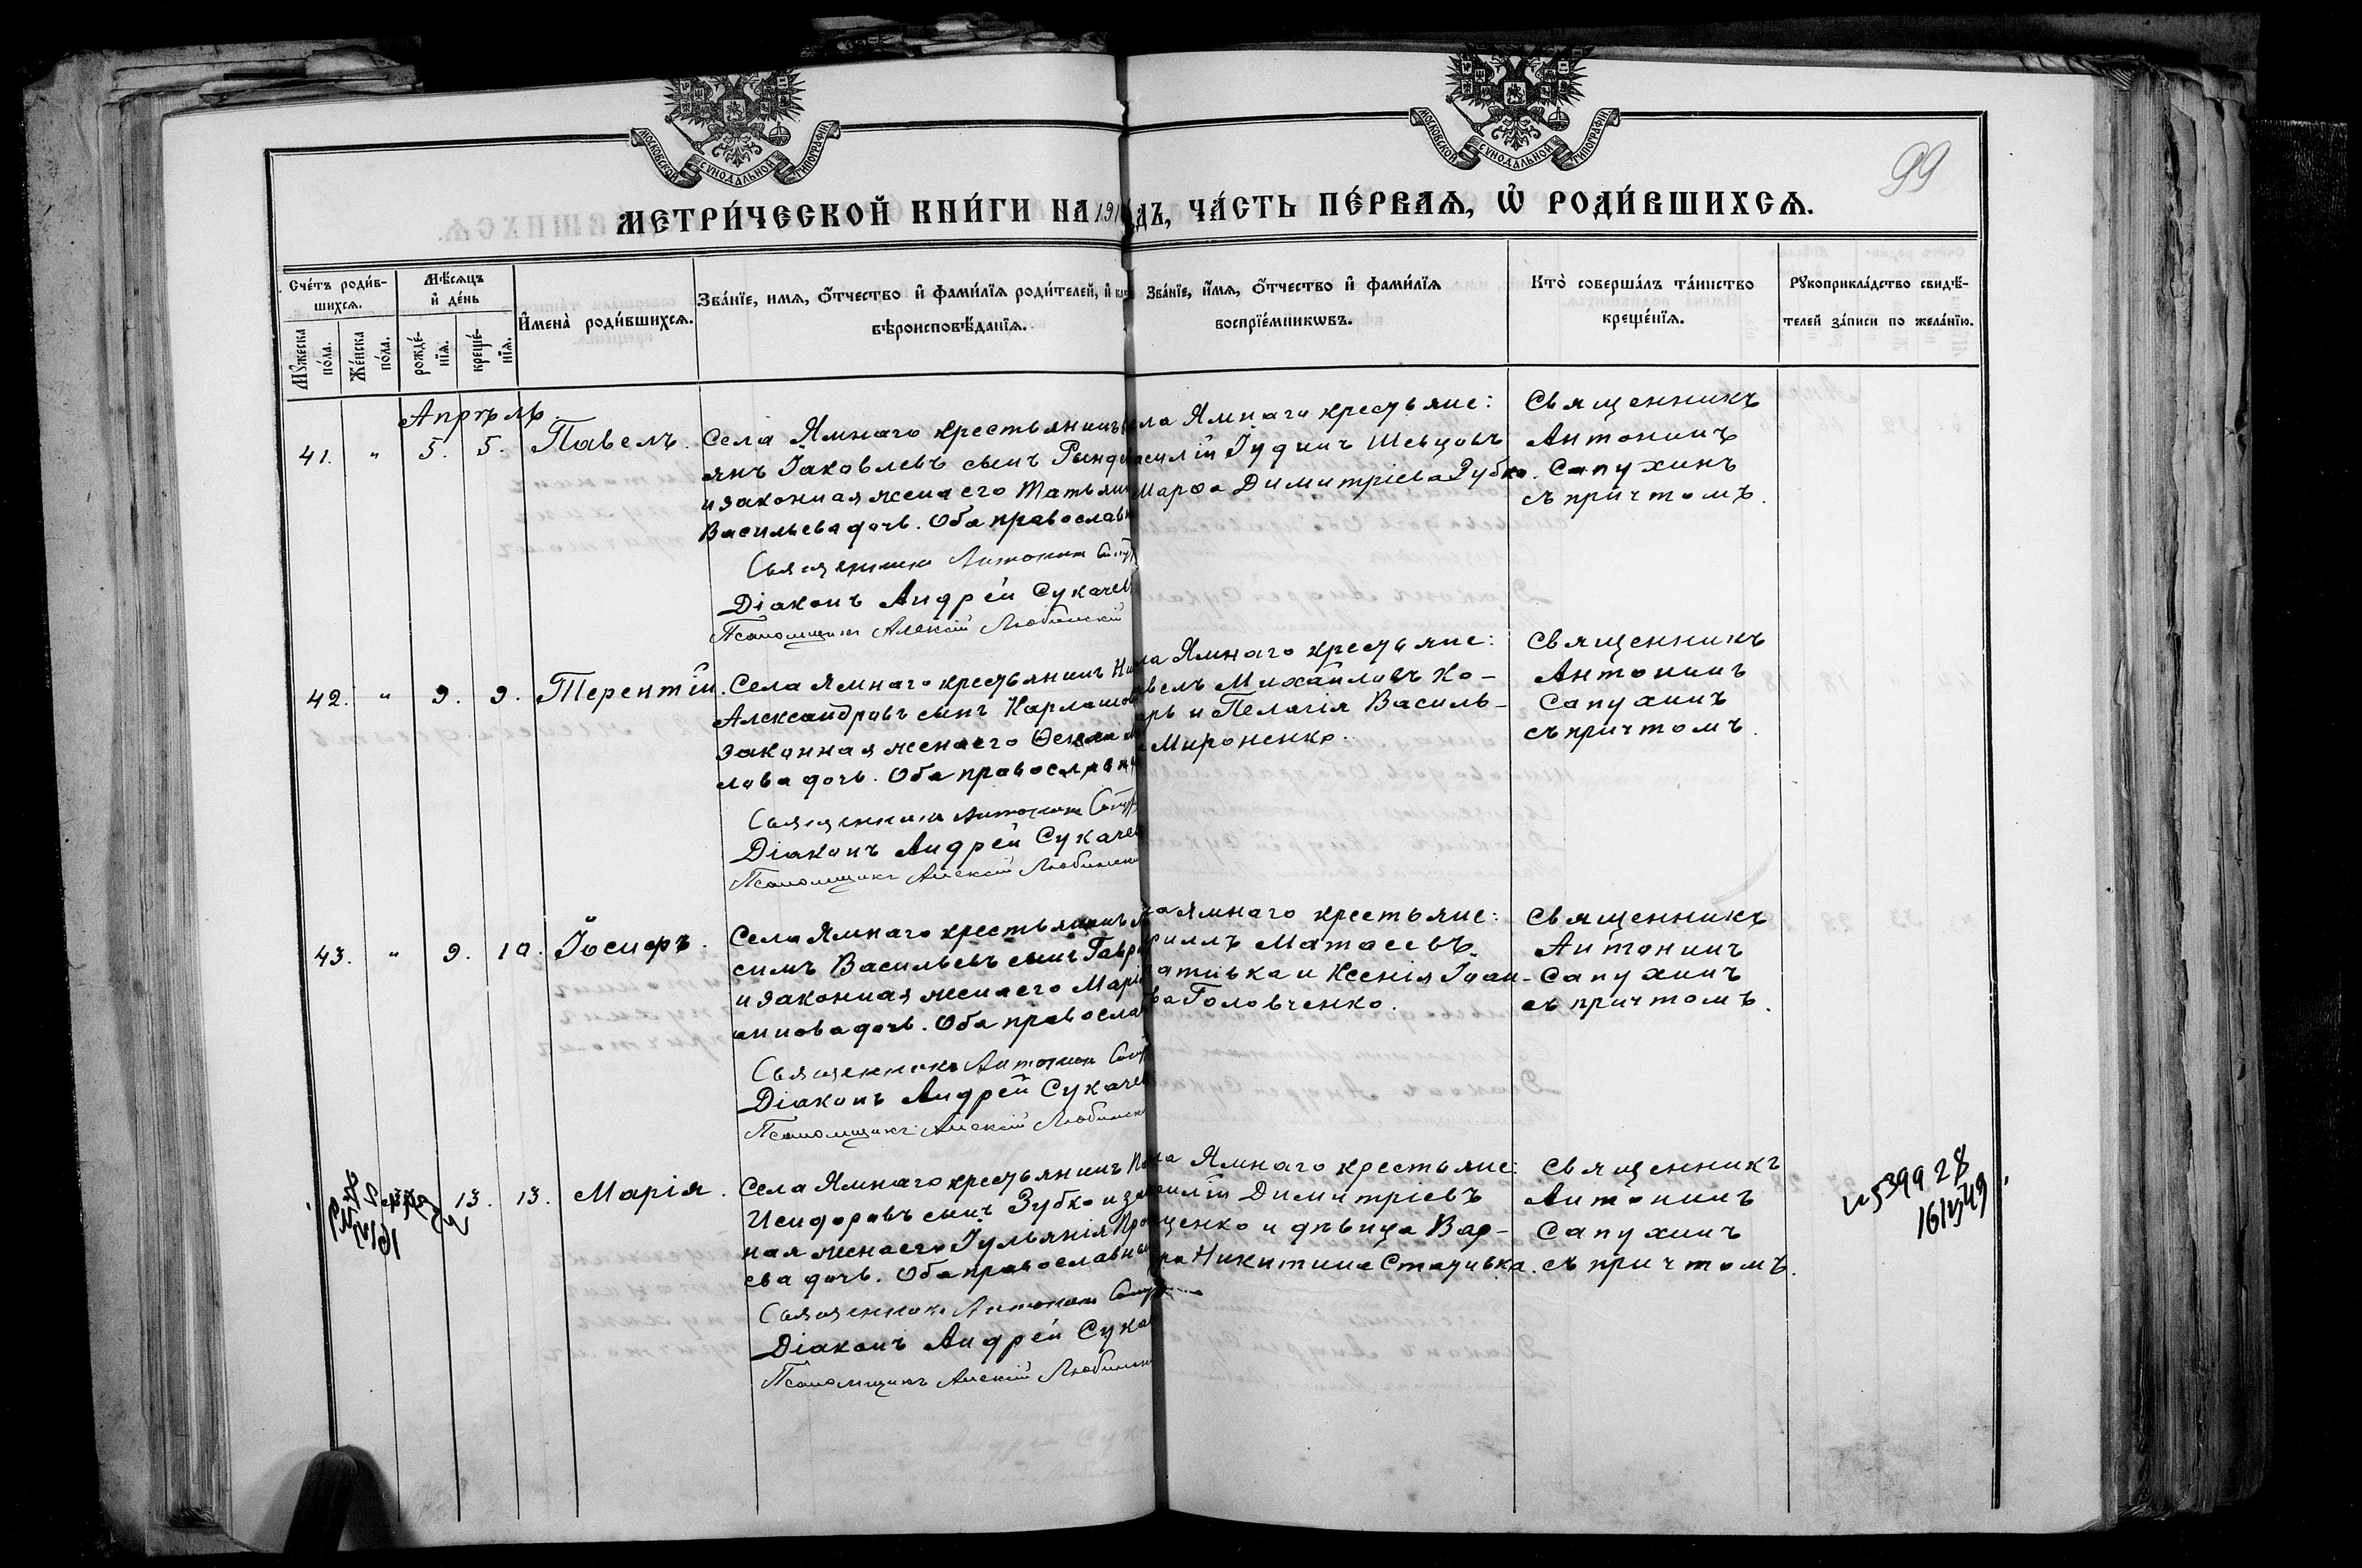 МОСКОВСКОЙ СѴНОДАЛЬНОЙ ТИПОГРАФІИ.
МОСКОВСКОЙ СѴНОДАЛЬНОЙ ТИПОГРАФІИ.
99
МЕТРИ́ЧЕСКОЙ КНИ́ГИ НА 191 ДЪ, ЧА́СТЬ ПЕ́РВАѦ, Ѡ҆ РОДИ́ВШИХСѦ.
Сче́тъ роди́в-
шихсѧ.
Мꙋжеска по́ла.
Же́нска по́ла.
Мѣ́сѧцъ
и҆ де́нь
рожде́-
нїѧ.
креще́-
нїѧ.
И҆мена̀ роди́вшихсѧ.
Зва́нїе, имѧ, ѻ҆́тчество и҆ фами́лїѧ роди́телей, и҆
вѣроисповѣ́данїѧ.
Зва́нїе, и҆́мѧ, ѻ҆́тчество и҆ фами́лїѧ
воспрїе́мникѡвъ.
Кто̀ соверша́лъ та́инство
креще́нїѧ.
Рꙋкоприкла́дство свидѣ́-
телей за́писи по жела́нїю.
Апрѣль.
41. " 5. 5. Павелъ.
Села Ямнаго крестьянинъ
янъ Іаковлевъ сынъ
и законная жена его
Васильева дочь. Оба
Священникъ Антонин
Діаконъ Андрей Сукачев
Псаломщикъ Алексій Любинскій
ла Ямнаго крестьяне:
асилій Іудинъ Шевцовъ
Марѳа Димитріева Зубко.
Священникъ
Антонинъ
Сапухинъ
съ причтомъ.
42. " 9. 9. Терентій.
Села Ямнаго крестьянинъ
Александровъ сынъ
законная жена его
лова дочь. Оба
Священникъ Антонин
Діаконъ Андрей Сукачев
Псаломщикъ Алексій Любинск
ла Ямнаго крестьяне:
авелъ Михайловъ Ко-
арь и Пелагія Василь-
Мироненко.
Священникъ
Антонинъ
Сапухинъ
съ причтомъ.
43. " 9. 10. Іосифъ.
Села Ямнаго крестьянинъ
симъ Васильевъ сынъ
и законная жена его
анnова дочь. Оба
Священникъ Антонин
Діаконъ Андрей Сукачев
Псаломщикъ Алексій Любинск
ла Ямнаго крестьяне:
риллъ Матѳеевъ
ативка и Ксенія Іоан-
ва Головченко.
Священникъ
Антонинъ
Сапухинъ
съ причтомъ.
13. 13. Марія.
Села Ямнаго крестьянинъ
Исидоровъ сынъ Зубко и
ная жена его Іульянія
ева дочь. Оба
Священникъ Антонин
Діаконъ Андрей Сука
Псаломщикъ Алексій Любинск
ла Ямнаго крестьяне:
силій Димитріевъ
ценко и дѣвица Вар-
ра Никитина Стативка.
Священникъ
Антонинъ
Сапухинъ
съ причтомъ.